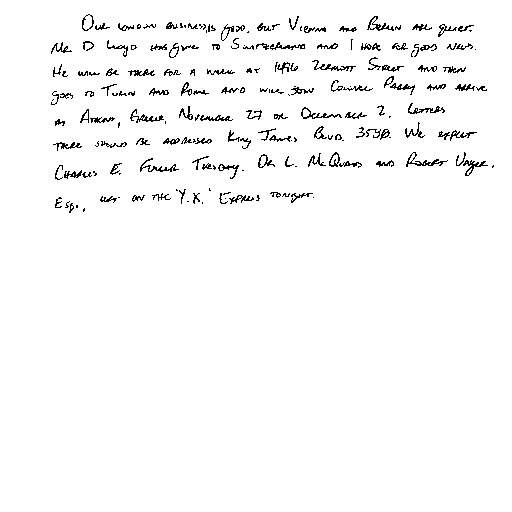 Our London business is good, but Vienna and Berlin are quiet.
Mr. D. Lloyd has gone to Switzerland and I hope for good news.
He will be there for a week at 1496 Zermott Street and then
goes to Turin and Rome and will join Colonel Parry and arrive
at Athens, Greece, November 27 or December 2. Letters
there should be addressed King James Blvd. 3580. We expect
Charles E. Fuller Tuesday. Dr. L. McQuaid and Robert Unger,
Esq., left on the "Y.X." Express tonight.